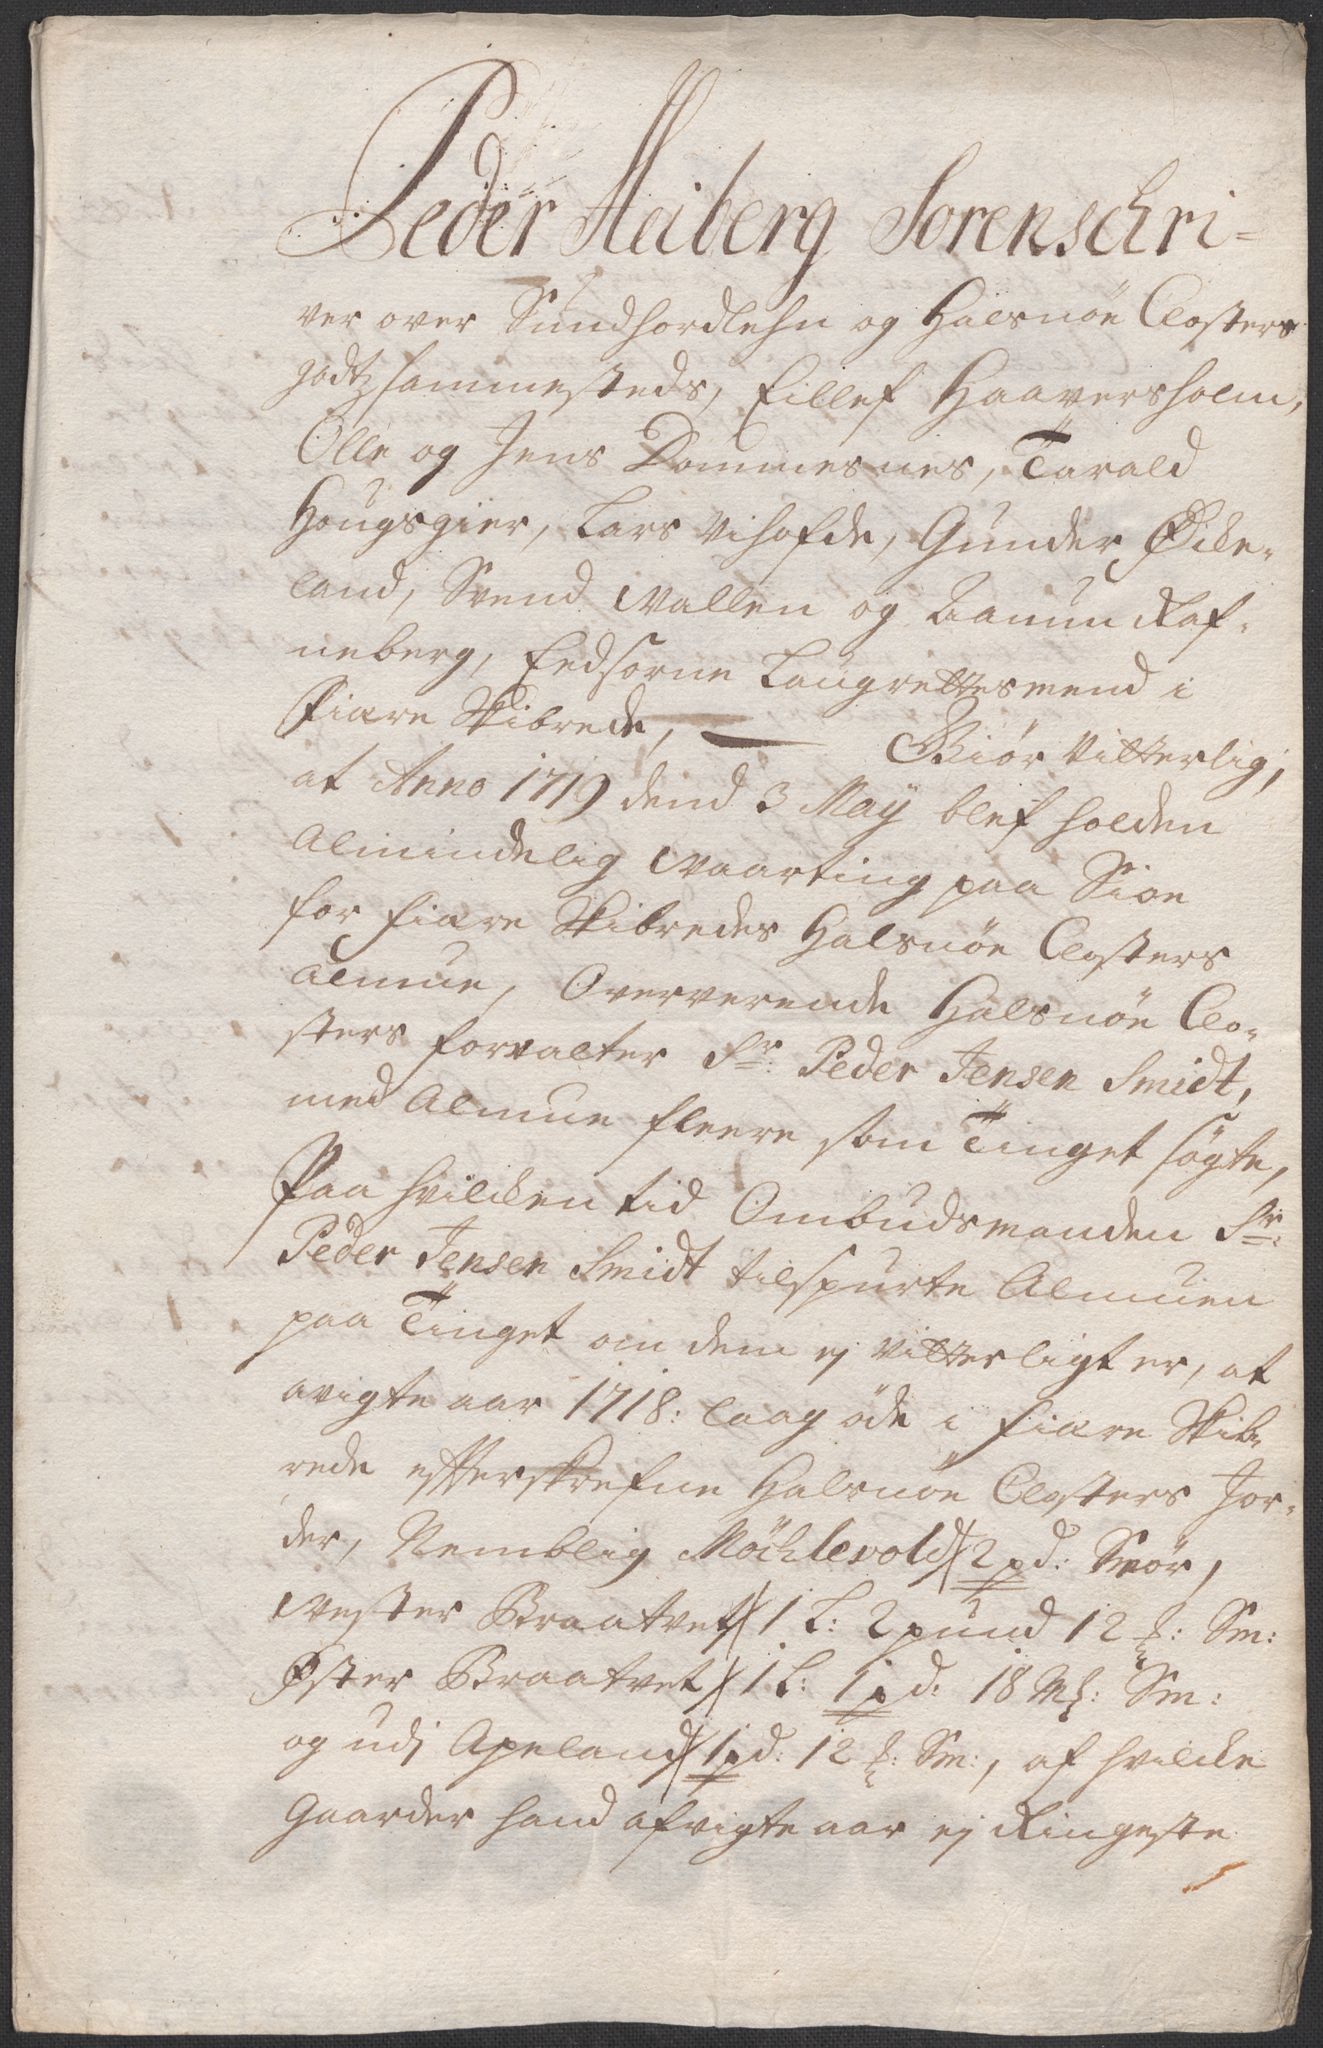 Peder Heiberg Sorenschri-
ver over Sundhordlehn og Halsnöe Closters
godtz sammesteds, Eillef Haaversholm,
Olle og Jens Dommesnes, Tarald
Hougsgier, Lars Vihofde, Gunder Øicke-
land, Svend Wallen og Aamun Raf-
neberg, Eedsorne Laugrettesmend i
Fiære Skibrede, Giör Vitterlig,
at Anno 1719 dend 3 May blef holden
Almindelig Waarting paa Sioe
for Fiære Skibredes Halsnöe Closters
Almue, Oververende Halsnöe Clo-
sters forvalter Sr: Peder Jensen Smidt,
med Almue fleere som Tinget søgte,
Paa hvilcken tid Ombudsmanden Sr:
Peder Jensen Smidt tilspurte Almuen
paa Tinget om dem ej Vitterligt er, at
avigte aar 1718: laag öde i Fiære Skib-
rede efterskrefne Halsnöe Closters Jor-
der, Nemblig Möchlevold 2 pd: Smör,
Wester Braatvet 1 L: 2 pund 12 ℔: Sm:
Øster Braatvet 1 L: 1 pd: 18 Mk: Sm:
og udj Apeland 1 pd: 12 ℔: Sm:, af hvilcke
Gaarder hand afvigte aar ej Ringeste